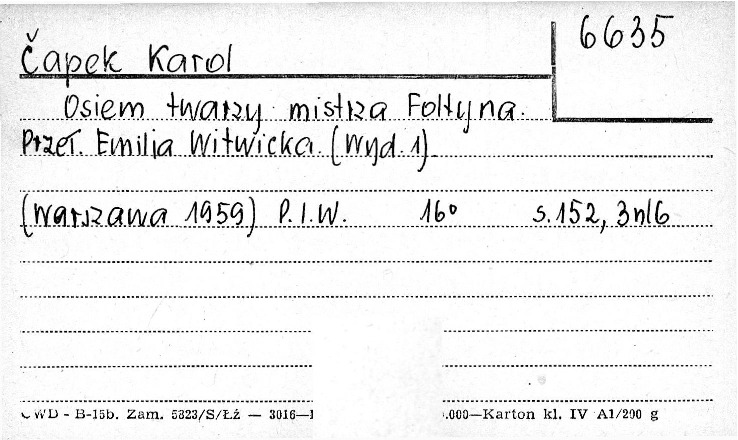 6635
Čapek Karol
Osiem twarzy mistrza Foltyna.
Przeł. Emilia Witwicka. (Wyd. 1)
(Warszawa 1959) P.I.W. 16° s. 152, 3nlb
CWD - B-15b. Zam. 5323/S/Łź — 3016— .000—Karton kl. IV A1/290 g